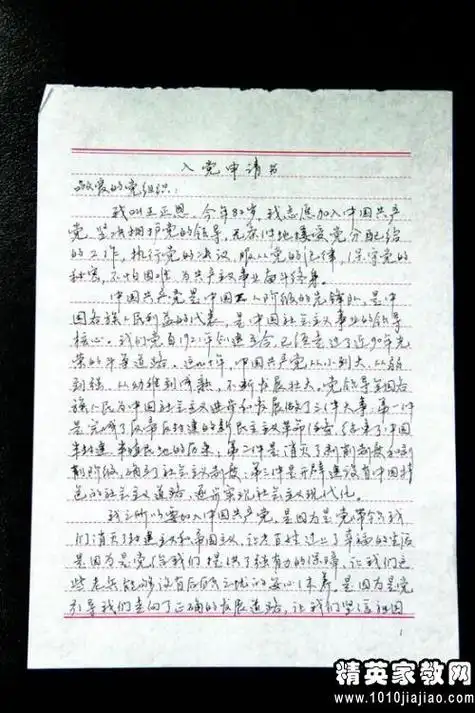 入党申请书
敬爱的党组织：
我叫王正恩，今年82岁，我志愿加入中国共产
党，坚决拥护党的领导，无条件地接受党分配给
的工作，执行党的决议，服从党的纪律，保守党的
秘密，不怕困难，为共产主义事业奋斗终身。
中国共产党是中国工人阶级的先锋队，是中
国各族人民利益的代表，是中国社会主义事业的领导
核心。我们党自1921年创建至今，已经走过了近90年光
荣的斗争道路。这90年，中国共产党从小到大，从弱
到强，从幼稚到成熟，不断发展壮大。党领导全国各
族人民为中国社会主义进步和发展做了三件大事：第一件
是完成了反帝反封建的新民主主义革命任务，结束了中国
半封建、半殖民地的历史；第二件是消灭了剥削制度和剥
削阶级，确立了社会主义制度；第三件是开辟建设有中国特
色的社会主义道路，逐步实现社会主义现代化。
我之所以要加入中国共产党，是因为是党带领我
们消灭了封建主义和帝国主义，让老百姓过上了幸福的生活
是因为是党给我们提供了强有力的保障，让我们这
些老兵能够没有后顾之忧的安心休养，是因为是党
引导我们走向了正确的发展道路，让我们坚信祖国
1
精英家教网
www.1010jiajiao.com